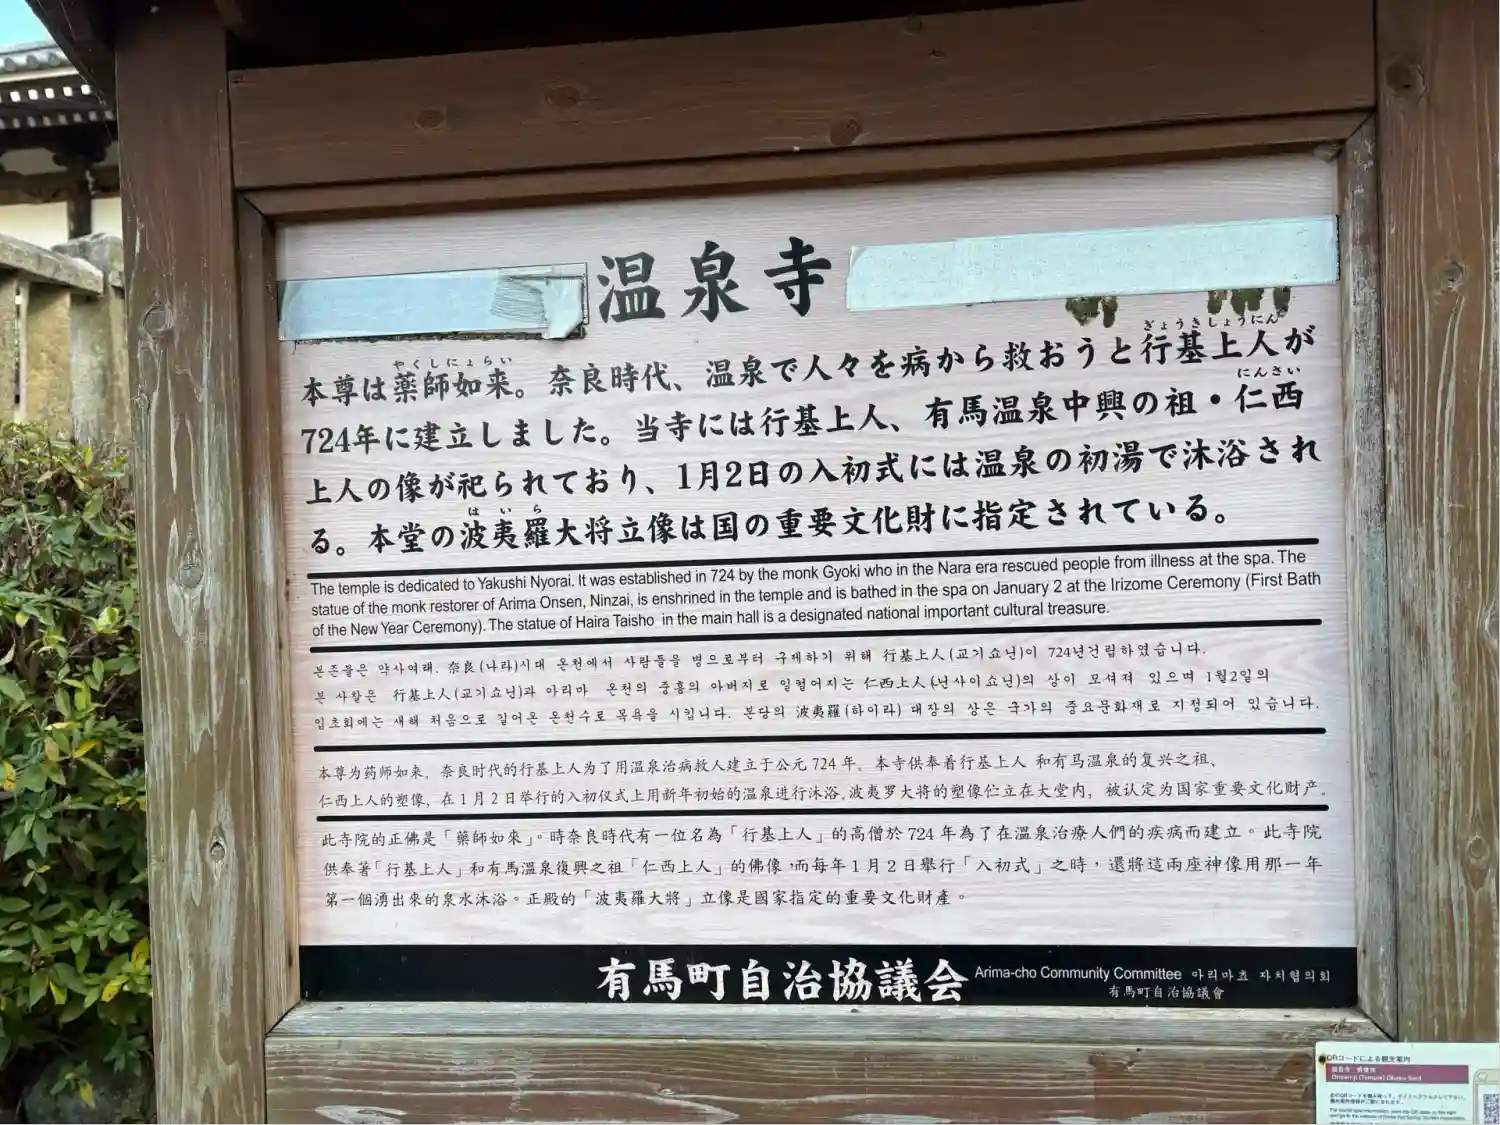 温泉寺
ぎょうきしょうにん
やくしにょらい
本尊は薬師如来。奈良時代、温泉で人々を病から救おうと行基上人が
にんさい
724年に建立しました。当寺には行基上人、有馬温泉中興の祖・仁西
上人の像が祀られており、1月2日の入初式には温泉の初湯で沐浴され
はいら
る。本堂の波夷羅大将立像は国の重要文化財に指定されている。
The temple is dedicated to Yakushi Nyorai. It was established in 724 by the monk Gyoki who in the Nara era rescued people from illness at the spa. The
statue of the monk restorer of Arima Onsen, Ninzai, is enshrined in the temple and is bathed in the spa on January 2 at the Irizome Ceremony (First Bath
of the New Year Ceremony). The statue of Haira Taisho in the main hall is a designated national important cultural treasure.
본존불은 약사여래. 奈良(나라)시대 온천에서 사람들을 병으로부터 구제하기 위해 行基上人(교기쇼닌)이 724년건립하였습니다.
본 사찰은 行基上人(교기쇼닌)과 아리마 온천의 중흥의 아버지로 일컬어지는 仁西上人(닌사이쇼닌)의 상이 모셔져 있으며 1월2일의
입초회에는 새해 처음으로 길어온 온천수로 목욕을 시킵니다. 본당의 波夷羅(하이라) 대장의 상은 국가의 중요문화재로 지정되어 있습니다.
本尊为药师如来。奈良时代的行基上人为了用温泉治病救人建立于公元 724 年。本寺供奉着行基上人 和有马温泉的复兴之祖、
仁西上人的塑像，在 1 月 2 日举行的入初仪式上用新年初始的温泉进行沐浴。波夷罗大将的塑像伫立在大堂内，被认定为国家重要文化财产。
此寺院的正佛是「藥師如來」。時奈良時代有一位名為「行基上人」的高僧於 724 年為了在溫泉治療人們的疾病而建立。此寺院
供奉著「行基上人」和有馬溫泉復興之祖「仁西上人」的佛像，而每年 1 月 2 日舉行「入初式」之時，還將這兩座神像用那一年
第一個湧出來的泉水沐浴。正殿的「波夷羅大將」立像是國家指定的重要文化財產。
有馬町自治協議会 Arima-cho Community Committee 아리마쵸 자치협의회
有馬町自治協議會
QRコードによる観光案内